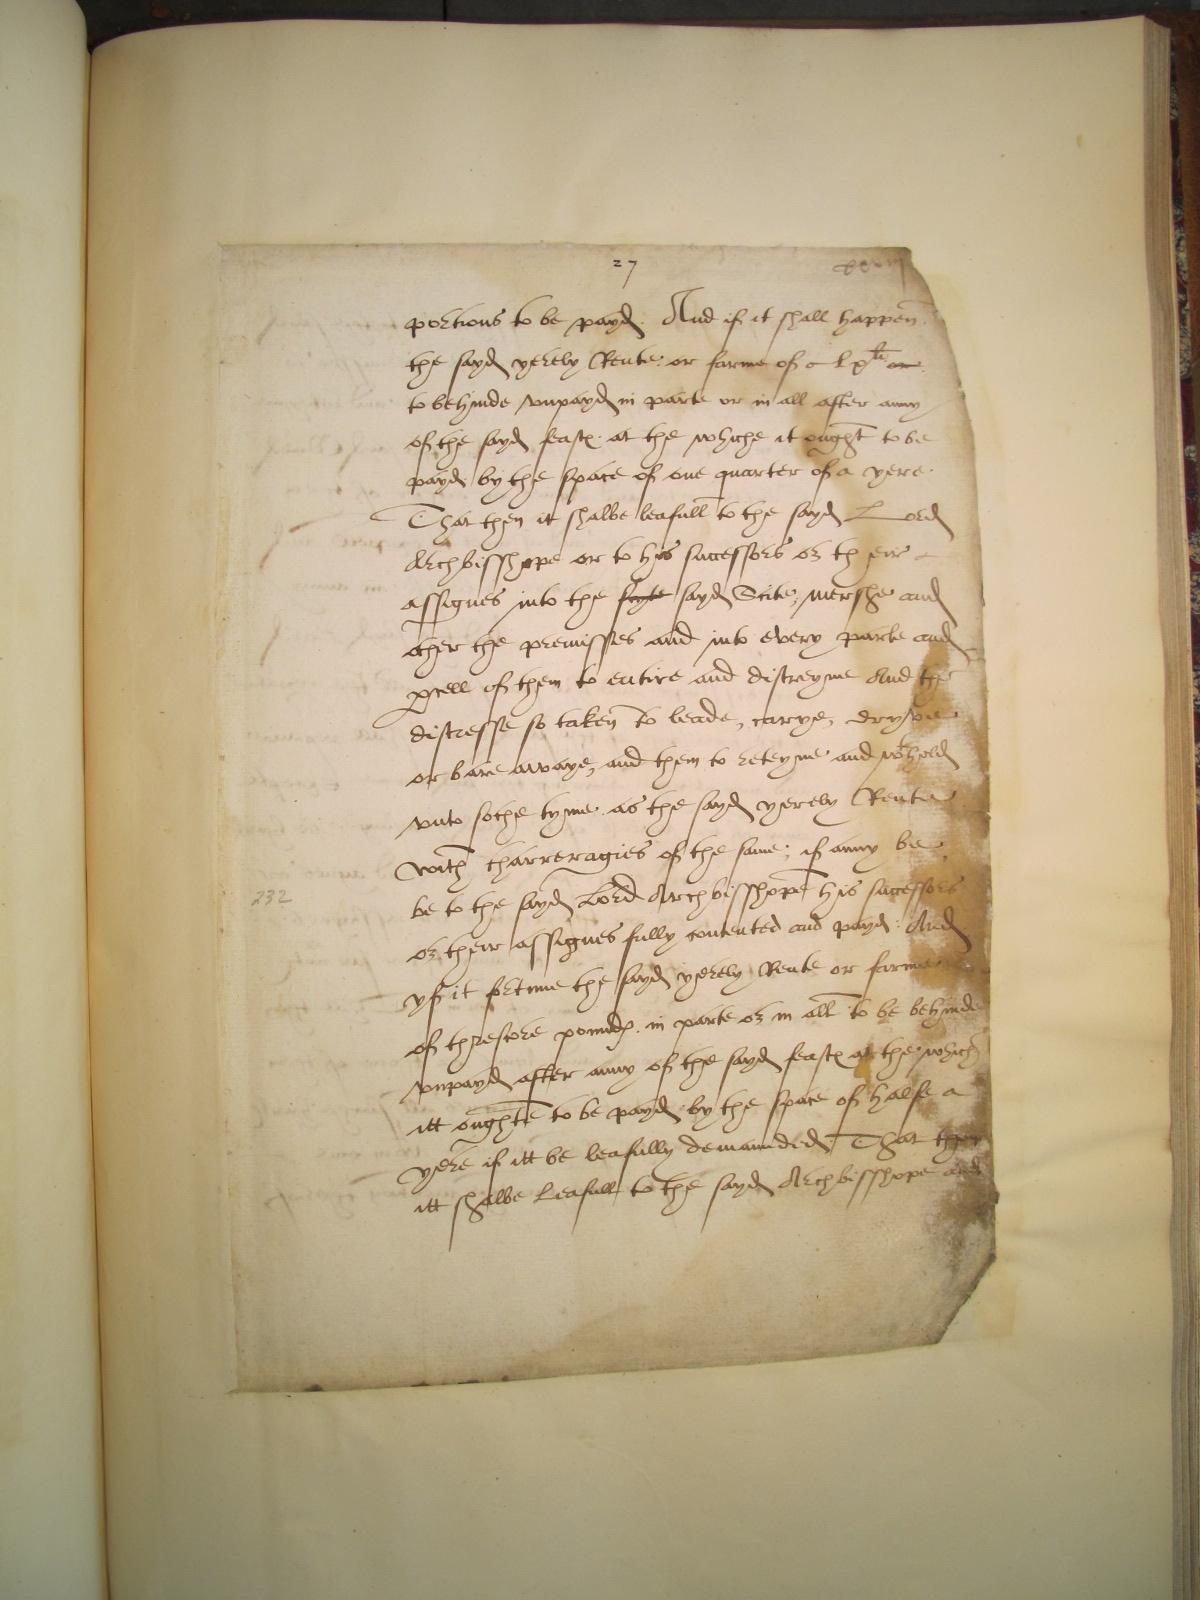 27
portions to be payd. And if it shall happen
the sayd yerely Rente or farme of lx li
to behinde vnpayd in parte or in all after anny
of the sayd feast at the whiche it ought to be
payd by the space of one quarter of a yere
That then it shalbe leafull to the sayd Lord
Archbisshope or to his successors or their
assignes into the scyte sayd Scite, mershe and
other the premisses and into every parte and
pcell of them to entire and distreyne And the
distresse so taken to leade, carye, dryve
or bare awaye, and them to reteyne and wtholde
vnto soche tyme as the sayd yerely Rente
with tharreragies of the same, if anny be,
be to the sayd Lord Archbisshope his successors
232
or their assignes fully contented and payd. And
yf it fortune the sayd yerely Rente or farme
of threscore pound in parte or in all to be behinde
vnpayd after anny of the sayd feast at the which
itt oughte to be payd by the space of halfe a
yere if itt be leafully demaunded, That then
itt shalbe leafull to the sayd Archbisshope and